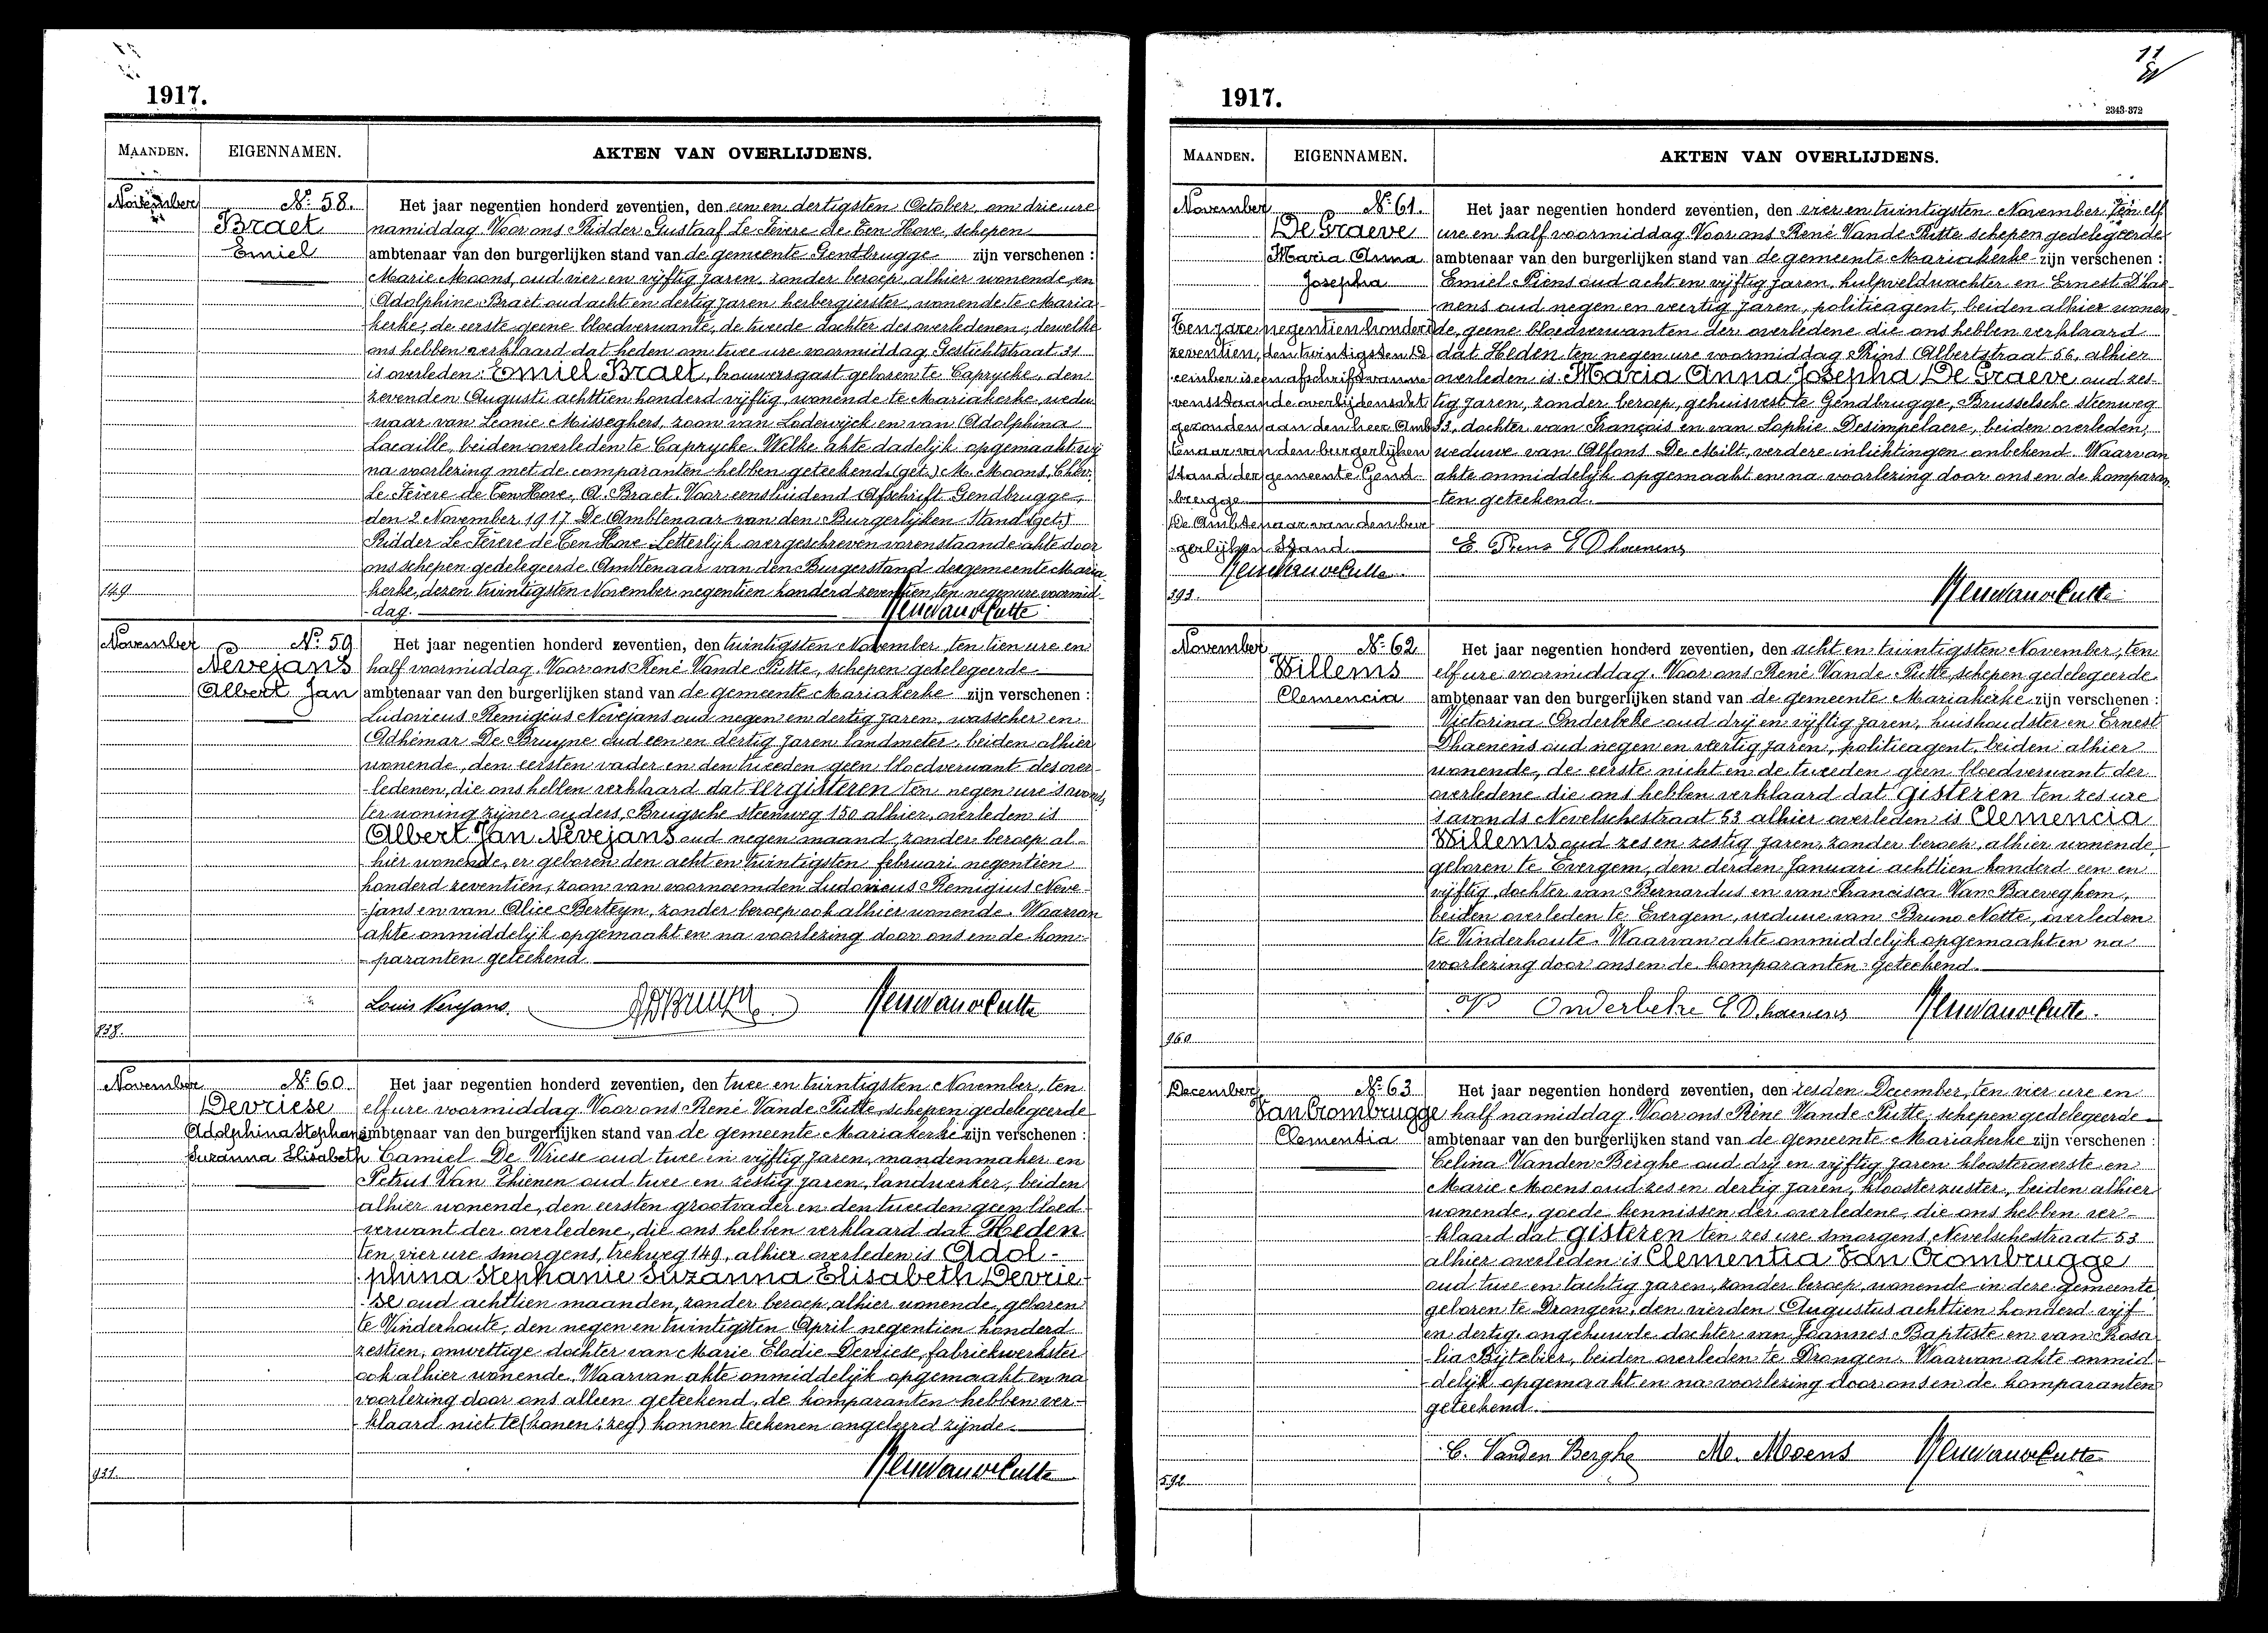 1917.
MAANDEN.
EIGENNAMEN.
AKTEN VAN OVERLIJDENS.
November
No. 58.
Braet
Emiel
Het jaar negentien honderd zeventien, den een en dertigsten October, om drie ure
namiddag Voor ons Ridder Gustaaf Le Fèvere de Ten Hove, schepen
ambtenaar van den burgerlijken stand van de gemeente Gendbrugge zijn verschenen :
Marie Moons, oud vier en vijftig jaren, zonder beroep, alhier wonende en
Adolphine Braet oud acht en dertig jaren herbergierster, wonende te Maria-
kerke, de eerste geene bloedverwante, de tweede dochter des overledenen, dewelke
ons hebben verklaard dat heden om twee ure voormiddag Gestichtstraat 21
is overleden: Emiel Braet, brouwersgast geboren te Caprycke, den
zevenden Augusti achttien honderd vijftig, wonende te Mariakerke, wedu-
waar van Leonie Misseghers, zoon van Lodewijck en van Adolphina
Lacaille, beiden overleden te Caprycke. Welke akte dadelijk opgemaakt wij
na voorlezing met de comparanten hebben geteekend. (get.) M. Moons, Chev.
Le Fèvere de Ten Hove, A. Braet. Voor eensluidend Afschrift Gendbrugge,
den 2 November 1917 De Ambtenaar van den Burgerlijken Stand (get.)
Ridder Le Fèvere de Ten Hove. Letterlijk overgeschreven vorenstaande akte door
ons schepen gedelegeerde Ambtenaar van den Burgerstand der gemeente Maria-
kerke, dezen twintigsten November negentien honderd zeventien, ten negen ure voormid-
dag.
149.
November
No. 59.
Nevejans
Albert Jan
Het jaar negentien honderd zeventien, den twintigsten November, ten tien ure en
half voormiddag. Voor ons René Vande Putte, schepen gedelegeerde
ambtenaar van den burgerlijken stand van de gemeente Mariakerke zijn verschenen :
Ludovicus Remigius Nevejans oud negen en dertig jaren, wasscher en
Adhémar De Bruyne oud een en dertig jaren landmeter, beiden alhier
wonende, den eersten vader en den tweeden geen bloedverwant des over-
ledenen, die ons hebben verklaard dat eergisteren ten negen ure s'avonds,
ter woning zijner ouders, Brugsche steenweg 150 alhier, overleden is
Albert Jan Nevejans oud negen maand, zonder beroep al-
hier wonende, er geboren den acht en twintigsten februari negentien
honderd zeventien, zoon van voornoemden Ludovicus Remigius Neve-
jans en van Alice Berteyn, zonder beroep ook alhier wonende. Waarvan
akte onmiddelijk opgemaakt en na voorlezing door ons en de kom-
paranten geteekend.
Louis Nevejans.
838.
November
No. 60.
Devriese
Adolphina Stephanie
Suzanna Elisabeth
Het jaar negentien honderd zeventien, den twee en twintigsten November, ten
elf ure voormiddag Voor ons René Vande Putte, schepen gedelegeerde
ambtenaar van den burgerlijken stand van de gemeente Mariakerke zijn verschenen :
Camiel De Vriese oud twee en vijftig jaren, mandenmaker en
Petrus Van Thienen oud twee en zestig jaren, landwerker, beiden
alhier wonende, den eersten grootvader en den tweeden geen bloed-
verwant der overledene, die ons hebben verklaard dat Heden
ten vier ure smorgens, trekweg 149, alhier overleden is Adol-
phina Stephanie Suzanna Elisabeth Devrie-
se oud achttien maanden, zonder beroep, alhier wonende, geboren
te Vinderhoute, den negen en twintigsten April negentien honderd
zestien, onwettige dochter van Marie Elodie Devriese, fabriekwerkster
ook alhier wonende. Waarvan akte onmiddelijk opgemaakt en na
voorlezing door ons alleen geteekend, de komparanten hebben ver-
klaard niet te (konen: zeg) konnen teekenen ongeleerd zijnde.
931.
1917.
2343-372
MAANDEN.
EIGENNAMEN.
AKTEN VAN OVERLIJDENS.
November
No. 61.
De Graeve
Maria Anna
Josepha
Ten jare negentien honderd
zeventien, den twintigsten De-
cember is een afschrift van ne-
venstaande overlijdensakt
gezonden aan den heer Amb-
tenaar van den burgerlijken
Stand der gemeente Gend-
brugge
De Ambtenaar van den bur-
gerlijken Stand
393.
Het jaar negentien honderd zeventien, den vier en twintigsten November, ten elf
ure en half voormiddag. Voor ons René Vande Putte schepen gedelegeerde
ambtenaar van den burgerlijken stand van de gemeente Mariakerke zijn verschenen :
Emiel Piens oud acht en vijftig jaren, hulpveldwachter en Ernest D'hae-
nens oud negen en veertig jaren, politieagent, beiden alhier wonen-
de, geene bloedverwanten der overledene die ons hebben verklaard
dat Heden ten negen ure voormiddag Prins Albertstraat 56, alhier
overleden is Maria Anna Josepha De Graeve, oud zes-
tig jaren, zonder beroep, gehuisvest te Gendbrugge, Brusselsche steenweg
53, dochter van François en van Sophie Desimpelaere, beiden overleden,
weduwe van Alfons De Milt, verdere inlichtingen onbekend. Waarvan
akte onmiddelijk opgemaakt en na voorlezing door ons en de kompar-
ten geteekend.
E. Piens E Dhaenens
November
No. 62.
Willems
Clemencia
Het jaar negentien honderd zeventien, den acht en twintigsten November, ten
elf ure voormiddag. Voor ons René Vande Putte, schepen gedelegeerde
ambtenaar van den burgerlijken stand van de gemeente Mariakerke zijn verschenen :
Victorina Onderbeke oud drij en vijftig jaren, huishoudster en Ernest
Dhaenens oud negen en veertig jaren, politieagent, beiden alhier
wonende, de eerste nicht en de tweeden geen bloedverwant der
overledene die ons hebben verklaard dat gisteren ten zes ure
s'avonds Nevelschestraat 53 alhier overleden is Clemencia
Willems oud zes en zestig jaren, zonder beroep, alhier wonende,
geboren te Evergem, den derden Januari achttien honderd een en
vijftig, dochter van Bernardus en van Francisca Van Baeveghem,
beiden overleden te Evergem, weduwe van Bruno Notte, overleden
te Vinderhoute. Waarvan akte onmiddelijk opgemaakt en na
voorlezing door ons en de komparanten geteekend.
Onderbeke E Dhaenens
960.
December
No. 63.
Van Crombrugge
Clementia
Het jaar negentien honderd zeventien, den zesden December, ten vier ure en
half namiddag. Voor ons René Vande Putte, schepen gedelegeerde
ambtenaar van den burgerlijken stand van de gemeente Mariakerke zijn verschenen :
Celina Vanden Berghe oud drij en vijftig jaren kloosteroverste en
Marie Moens oud zes en dertig jaren, kloosterzuster, beiden alhier
wonende, goede kennissen der overledene, die ons hebben ver-
klaard dat gisteren ten zes ure smorgens, Nevelschestraat 53
alhier overleden is Clementia Van Crombrugge
oud twee en tachtig jaren, zonder beroep, wonende in deze gemeente
geboren te Drongen, den vierden Augustus achttien honderd vijf
en dertig, ongehuwde dochter van Joannes Baptiste en van Rosa-
lia Bijtebier, beiden overleden te Drongen. Waarvan akte onmid-
delijk opgemaakt en na voorlezing door ons en de komparanten
geteekend.
C. Vanden Berghe M. Moens
592.